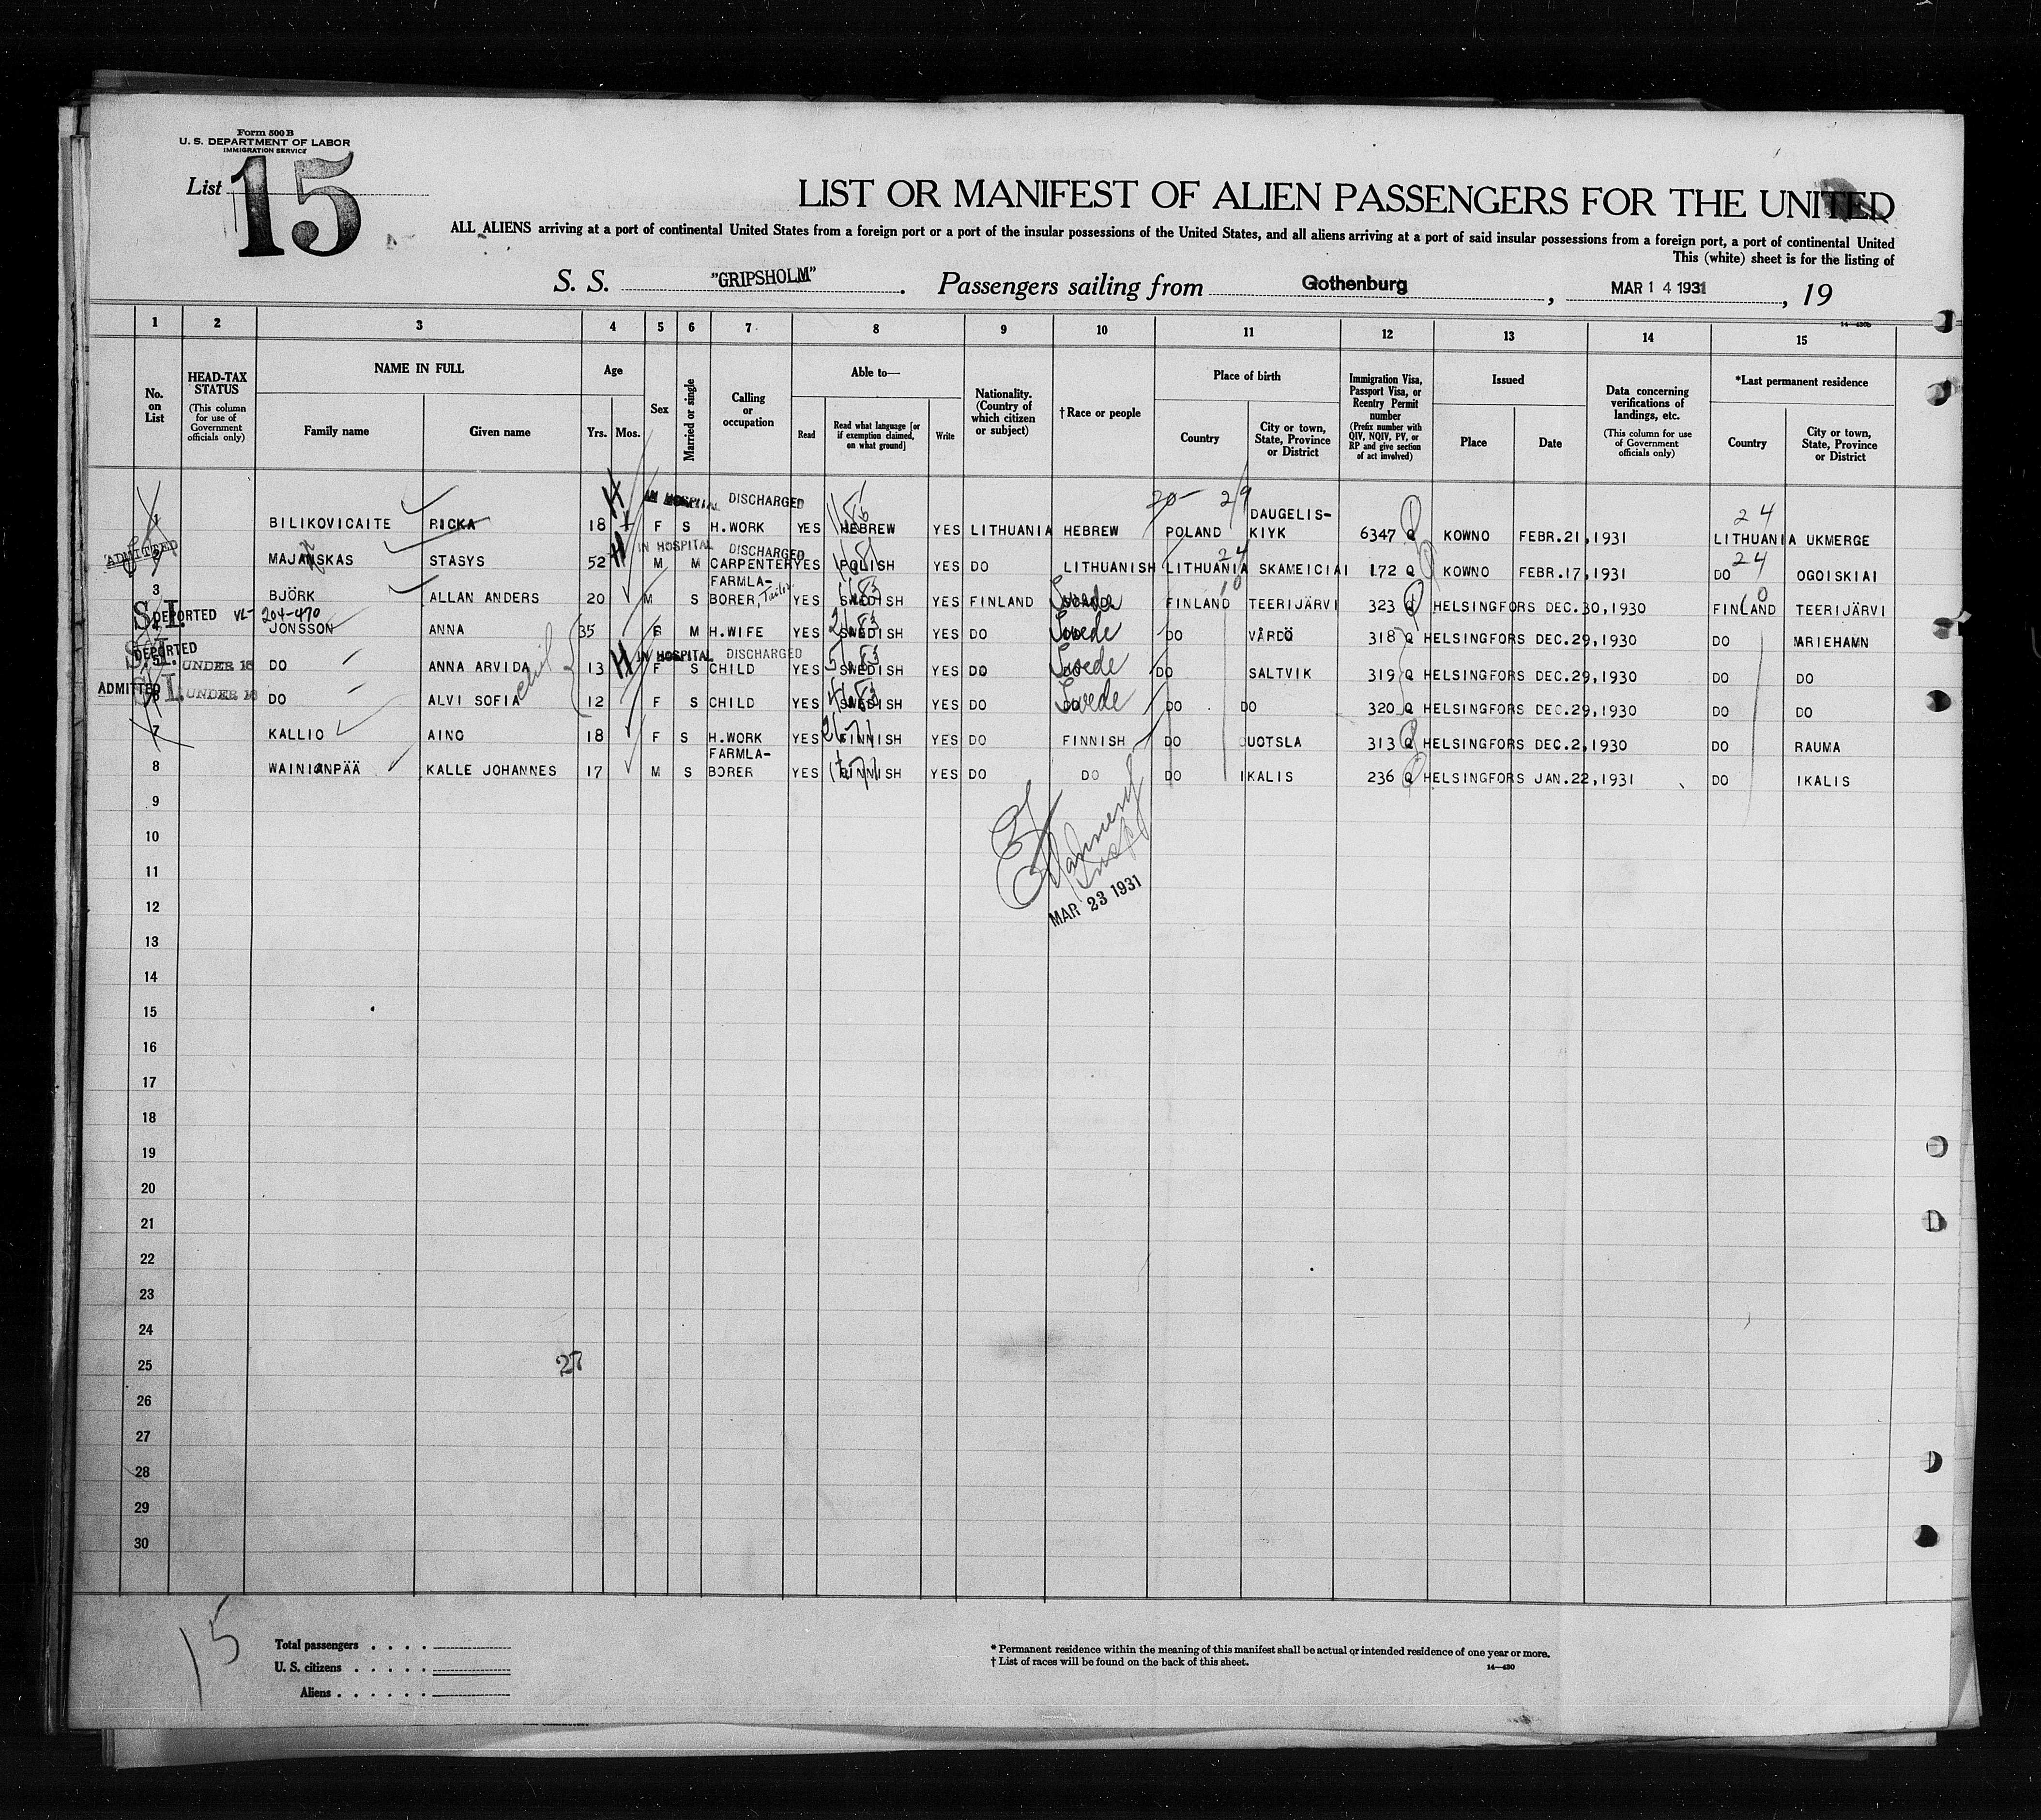 Form 500 B
U. S. DEPARTMENT OF LABOR
IMMIGRATION SERVICE
List 15
LIST OR MANIFEST OF ALIEN PASSENGERS FOR THE UNITED
ALL ALIENS arriving at a port of continental United States from a foreign port or a port of the insular possessions of the United States, and all aliens arriving at a port of said insular possessions from a foreign port, a port of continental United
This (white) sheet is for the listing of
S. S. "GRIPSHOLM". Passengers sailing from Gothenburg, MAR 14 1931, 19
1 2 3 4 5 6 7 8 9 10 11 12 13 14 15
14—430b
No. on List
HEAD-TAX STATUS (This column for use of Government officials only)
NAME IN FULL
Family name Given name
Age
Yrs. Mos.
Sex
Married or single
Calling or occupation
Able to—
Read Read what language [or if exemption claimed, on what ground] Write
Nationality. (Country of which citizen or subject)
† Race or people
Place of birth
Country City or town, State, Province or District
Immigration Visa, Passport Visa, or Reentry Permit number (Prefix number with QIV, NQIV, PV, or RP and give section of act involved)
Issued
Place Date
Data concerning verifications of landings, etc. (This column for use of Government officials only)
*Last permanent residence
Country City or town, State, Province or District
H IN HOSPITAL DISCHARGED 20 29 24
1 BILIKOVICAITE RICKA 18 F S H.WORK YES HEBREW YES LITHUANIA HEBREW POLAND DAUGELIS-KIYK 6347 Q KOWNO FEBR.21,1931 LITHUANIA UKMERGE
ADMITTED H IN HOSPITAL DISCHARGED 24 24
2 MAJANSKAS STASYS 52 M M CARPENTER YES POLISH YES DO LITHUANISH LITHUANIA SKAMEICIAI 172 Q KOWNO FEBR.17,1931 DO OGOISKIAI
3 BJÖRK ALLAN ANDERS 20 M S FARMLA-BORER, Tailor YES SWEDISH YES FINLAND Swede FINLAND TEERIJÄRVI 323 Q HELSINGFORS DEC.30,1930 FINLAND TEERIJÄRVI
S.I. DEPORTED VL- 204-470
4 JONSSON ANNA 35 F M H.WIFE YES SWEDISH YES DO Swede DO VÅRDÖ 318 Q HELSINGFORS DEC.29,1930 DO MRIEHAMN
S.I. DEPORTED UNDER 16 H IN HOSPITAL DISCHARGED
5 DO ANNA ARVIDA 13 F S CHILD YES SWEDISH YES DO Swede DO SALTVIK 319 Q HELSINGFORS DEC.29,1930 DO DO
ADMITTED S.I. UNDER 16
6 DO ALVI SOFIA 12 F S CHILD YES SWEDISH YES DO Swede DO DO 320 Q HELSINGFORS DEC.29,1930 DO DO
7 KALLIO AINO 18 F S H.WORK YES FINNISH YES DO FINNISH DO UOTSLA 313 Q HELSINGFORS DEC.2,1930 DO RAUMA
8 WAINIONPÄÄ KALLE JOHANNES 17 M S FARMLA-BORER YES FINNISH YES DO DO DO IKALIS 236 Q HELSINGFORS JAN.22,1931 DO IKALIS
9
10
11
MAR 23 1931
12
13
14
15
16
17
18
19
20
21
22
23
24
25
26
27
28
29
30
15
Total passengers
U. S. citizens
Aliens
* Permanent residence within the meaning of this manifest shall be actual or intended residence of one year or more.
† List of races will be found on the back of this sheet.
14—430